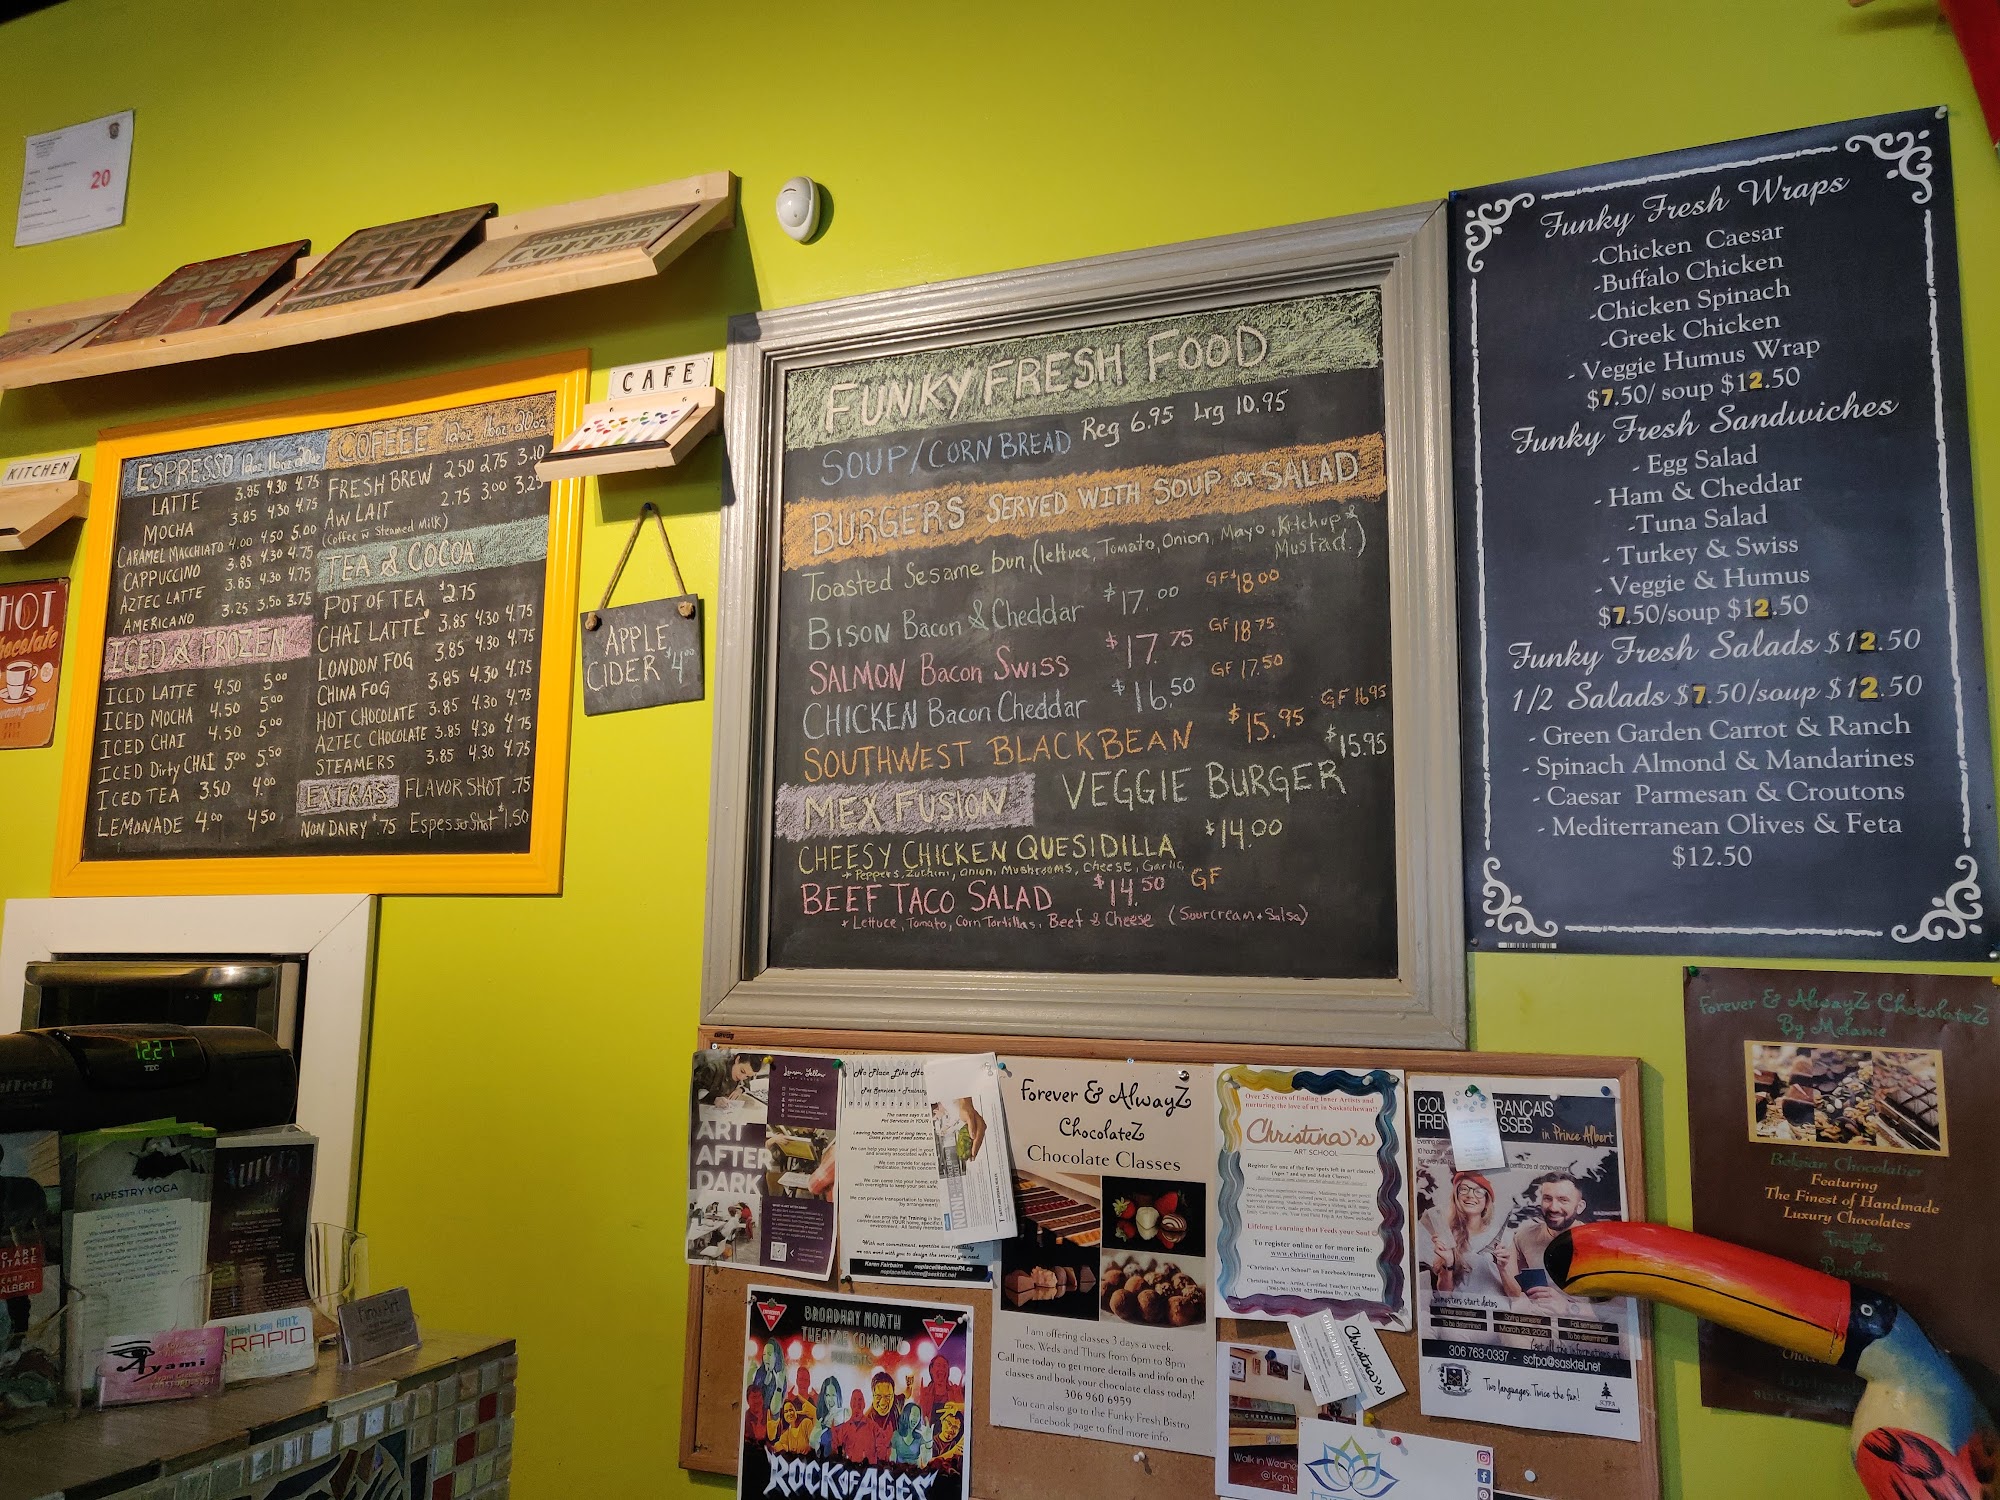 20
BEER
FREE
BEER
TOMORROW
COFFEE
KITCHEN
CAFE
HOT
hocolate
ESPRESSO 12oz 16oz 20oz
LATTE 3.85 4.30 4.75
MOCHA 3.85 4.30 4.75
CARAMEL MACCHIATO 4.00 4.50 5.00
CAPPUCCINO 3.85 4.30 4.75
AZTEC LATTE 3.85 4.30 4.75
AMERICANO 3.25 3.50 3.75
ICED & FROZEN
ICED LATTE 4.50 5.00
ICED MOCHA 4.50 5.00
ICED CHAI 4.50 5.00
ICED Dirty CHAI 5.00 5.50
ICED TEA 3.50 4.00
LEMONADE 4.00 4.50
COFEEE 12oz 16oz 20oz
FRESH BREW 2.50 2.75 3.10
AW LAIT 2.75 3.00 3.25
(Coffee w Steamed Milk)
TEA & COCOA
POT OF TEA $2.75
CHAI LATTE 3.85 4.30 4.75
LONDON FOG 3.85 4.30 4.75
CHINA FOG 3.85 4.30 4.75
HOT CHOCOLATE 3.85 4.30 4.75
AZTEC CHOCOLATE 3.85 4.30 4.75
STEAMERS 3.85 4.30 4.75
EXTRAS FLAVOR SHOT .75
NON DAIRY $.75 Espesso Shot $1.50
APPLE
CIDER $4.00
FUNKY FRESH FOOD
SOUP/CORN BREAD Reg 6.95 Lrg 10.95
BURGERS SERVED WITH SOUP or SALAD
Toasted Sesame bun, (lettuce, Tomato, Onion, Mayo, Kitchup &
Mustad.)
BISON Bacon & Cheddar $17.00 GF $18.00
SALMON Bacon Swiss $17.75 GF 18.75
CHICKEN Bacon Cheddar $16.50 GF 17.50
SOUTHWEST BLACKBEAN $15.95 GF 16.95
MEX FUSION VEGGIE BURGER $15.95
CHEESY CHICKEN QUESIDILLA $14.00
* Peppers, Zuchini, Onion, Mushrooms, Cheese, Garlic
BEEF TACO SALAD $14.50 GF
* Lettuce, Tomato, Corn Tortillas, Beef & Cheese (Sourcream + Salsa)
Funky Fresh Wraps
-Chicken Caesar
-Buffalo Chicken
-Chicken Spinach
-Greek Chicken
- Veggie Humus Wrap
$7.50/ soup $12.50
Funky Fresh Sandwiches
- Egg Salad
- Ham & Cheddar
-Tuna Salad
- Turkey & Swiss
- Veggie & Humus
$7.50/soup $12.50
Funky Fresh Salads $12.50
1/2 Salads $7.50/soup $12.50
- Green Garden Carrot & Ranch
- Spinach Almond & Mandarines
- Caesar Parmesan & Croutons
- Mediterranean Olives & Feta
$12.50
12:21
TEC
TAPESTRY YOGA
Ayami
RAPID
ART
AFTER
DARK
No Place Like Ho
Pet Services
Karen Fairbairn noplacelikehomePA.ca
noplacelikehome@sasktel.net
BROADWAY NORTH
THEATRE COMPANY
ROCK OF AGES
Forever & AlwayZ
ChocolateZ
Chocolate Classes
I am offering classes 3 days a week.
Tues, Weds and Thurs from 6pm to 8pm
Call me today to get more details and info on the
classes and book your chocolate class today!
306 960 6959
You can also go to the Funky Fresh Bistro
Facebook page to find more info.
Over 25 years of finding Inner Artists and
nurturing the love of art in Saskatchewan!!
Christina's
ART SCHOOL
Register for one of the few spots left in art classes!
Lifelong Learning that Feeds your Soul
To register online or for more info:
www.christinathoen.com
"Christina's Art School" on Facebook/Instagram
Christina's
Walk in Wednes
@ Ken's
COU FRANÇAIS
FREN SSES in Prince Albert
Semesters start dates
Winter semester Spring semester Fall semester
To be determined March 23, 2021 To be determined
306 763-0337 - scfpa@sasktel.net
Two languages. Twice the fun!
Forever & AlwayZ ChocolateZ
By Melanie
Belgian Chocolatier
Featuring
The Finest of Handmade
Luxury Chocolates
Truffles
Bonbons